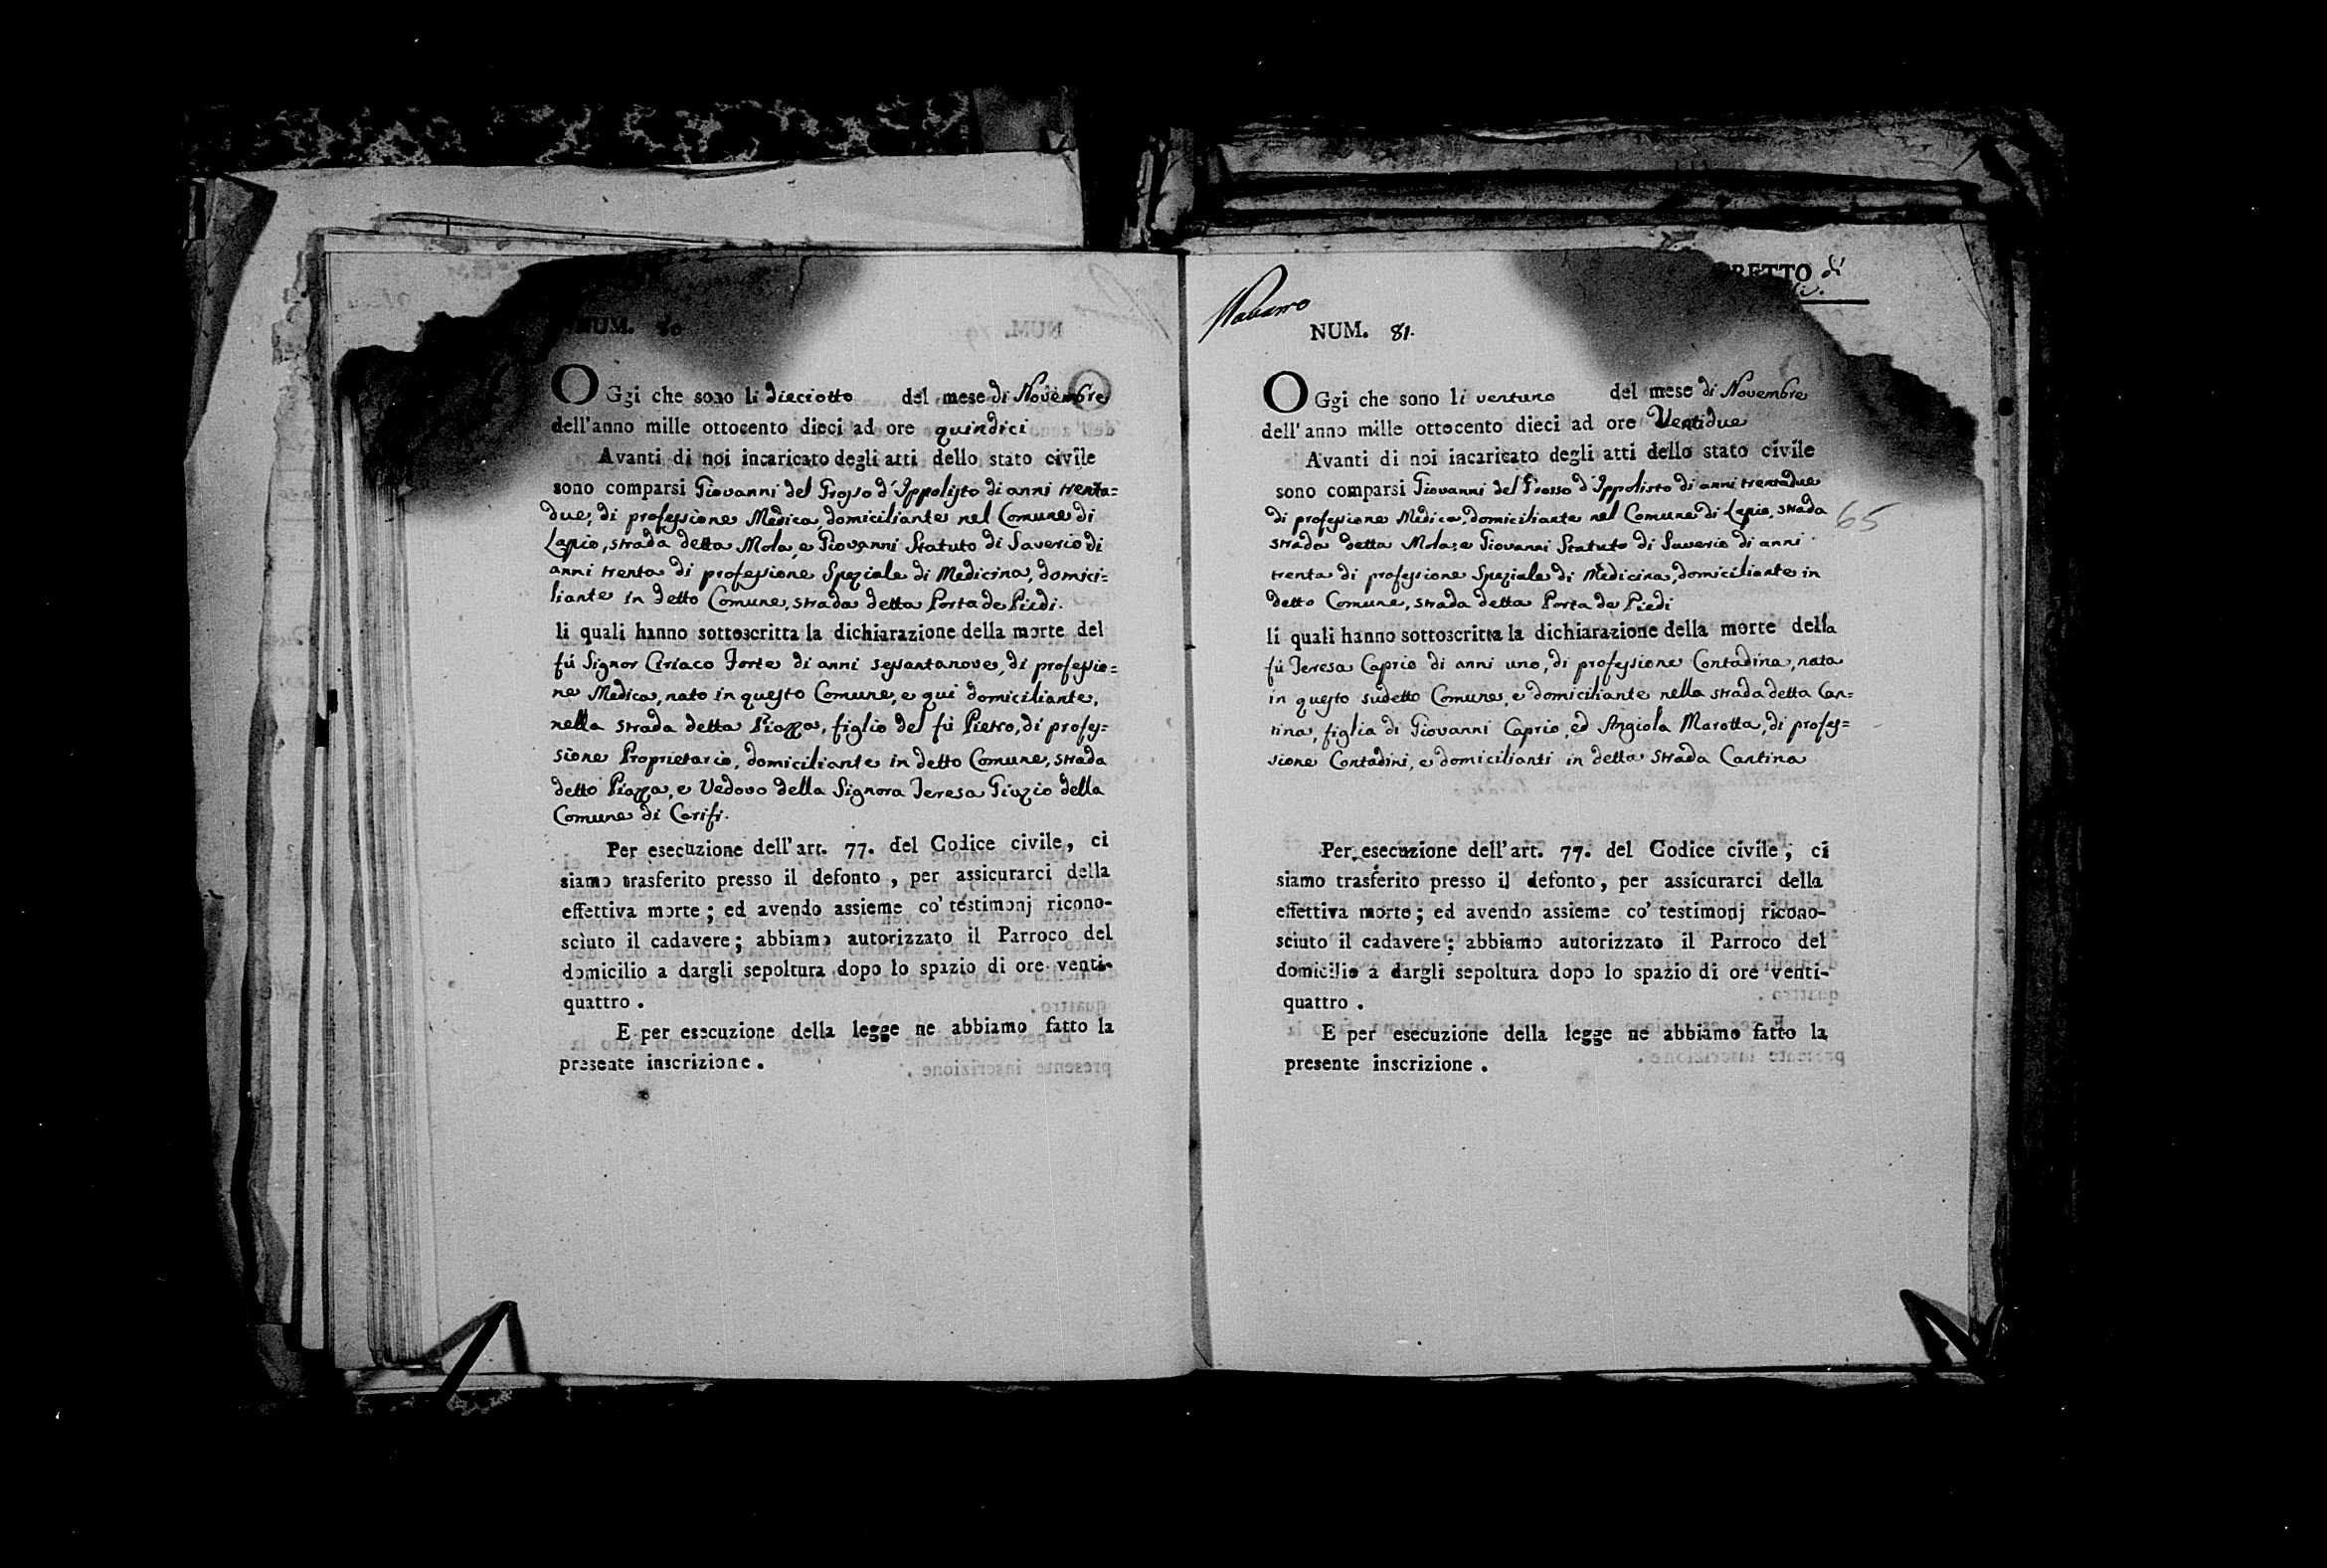 NUM. 80
OGgi che sono li dieciotto del mese di Novembre
dell'anno mille ottocento dieci ad ore quindici
Avanti di noi incaricato degli atti dello stato civile
sono comparsi Giovanni del Grosso d'Ippolisto di anni trenta=
due, di professione Medica, domiciliante nel Comune di
Lapio, strada detta Mola, e Giovanni Statuto di Saverio di
anni trenta di professione Speziale di Medicina, domici=
liante in detto Comune, strada detta Porta de Piedi.
li quali hanno sottoscritta la dichiarazione della morte del
fù Signor Ciriaco Forte di anni sessantanove, di professio=
ne Medica, nato in questo Comune, e qui domiciliante,
nella strada detta Piazza, figlio del fù Pietro, di profes=
sione Proprietario, domiciliante in detto Comune, strada
detto Piazza, e Vedovo della Signora Teresa Giozio della
Comune di Carifi.
Per esecuzione dell'art. 77. del Codice civile, ci
siamo trasferito presso il defonto, per assicurarci della
effettiva morte; ed avendo assieme co' testimonj ricono-
sciuto il cadavere; abbiamo autorizzato il Parroco del
domicilio a dargli sepoltura dopo lo spazio di ore venti-
quattro.
E per esecuzione della legge ne abbiamo fatto la
presente inscrizione.
RETTO di
Navarro
NUM. 81.
OGgi che sono li ventuno del mese di Novembre
dell'anno mille ottocento dieci ad ore Ventidue
Avanti di noi incaricato degli atti dello stato civile
sono comparsi Giovanni del Grosso d'Ippolisto di anni trentadue
di professione Medica, domiciliante nel Comune di Lapio, strada
65
strada detta Mola, e Giovanni Statuto di Saverio di anni
trenta di professione Speziale di Medicina, domiciliante in
detto Comune, strada detta Porta de Piedi
li quali hanno sottoscritta la dichiarazione della morte della
fù Teresa Caprio di anni uno, di professione Contadina, nata
in questo sudetto Comune, e domiciliante nella strada detta Can=
tina, figlia di Giovanni Caprio, ed Angiola Marotta, di profes=
sione Contadini, e domicilianti in detta Strada Cantina
Per esecuzione dell'art. 77. del Codice civile, ci
siamo trasferito presso il defonto, per assicurarci della
effettiva morte; ed avendo assieme co' testimonj ricono-
sciuto il cadavere; abbiamo autorizzato il Parroco del
domicilio a dargli sepoltura dopo lo spazio di ore venti-
quattro.
E per esecuzione della legge ne abbiamo fatto la
presente inscrizione.